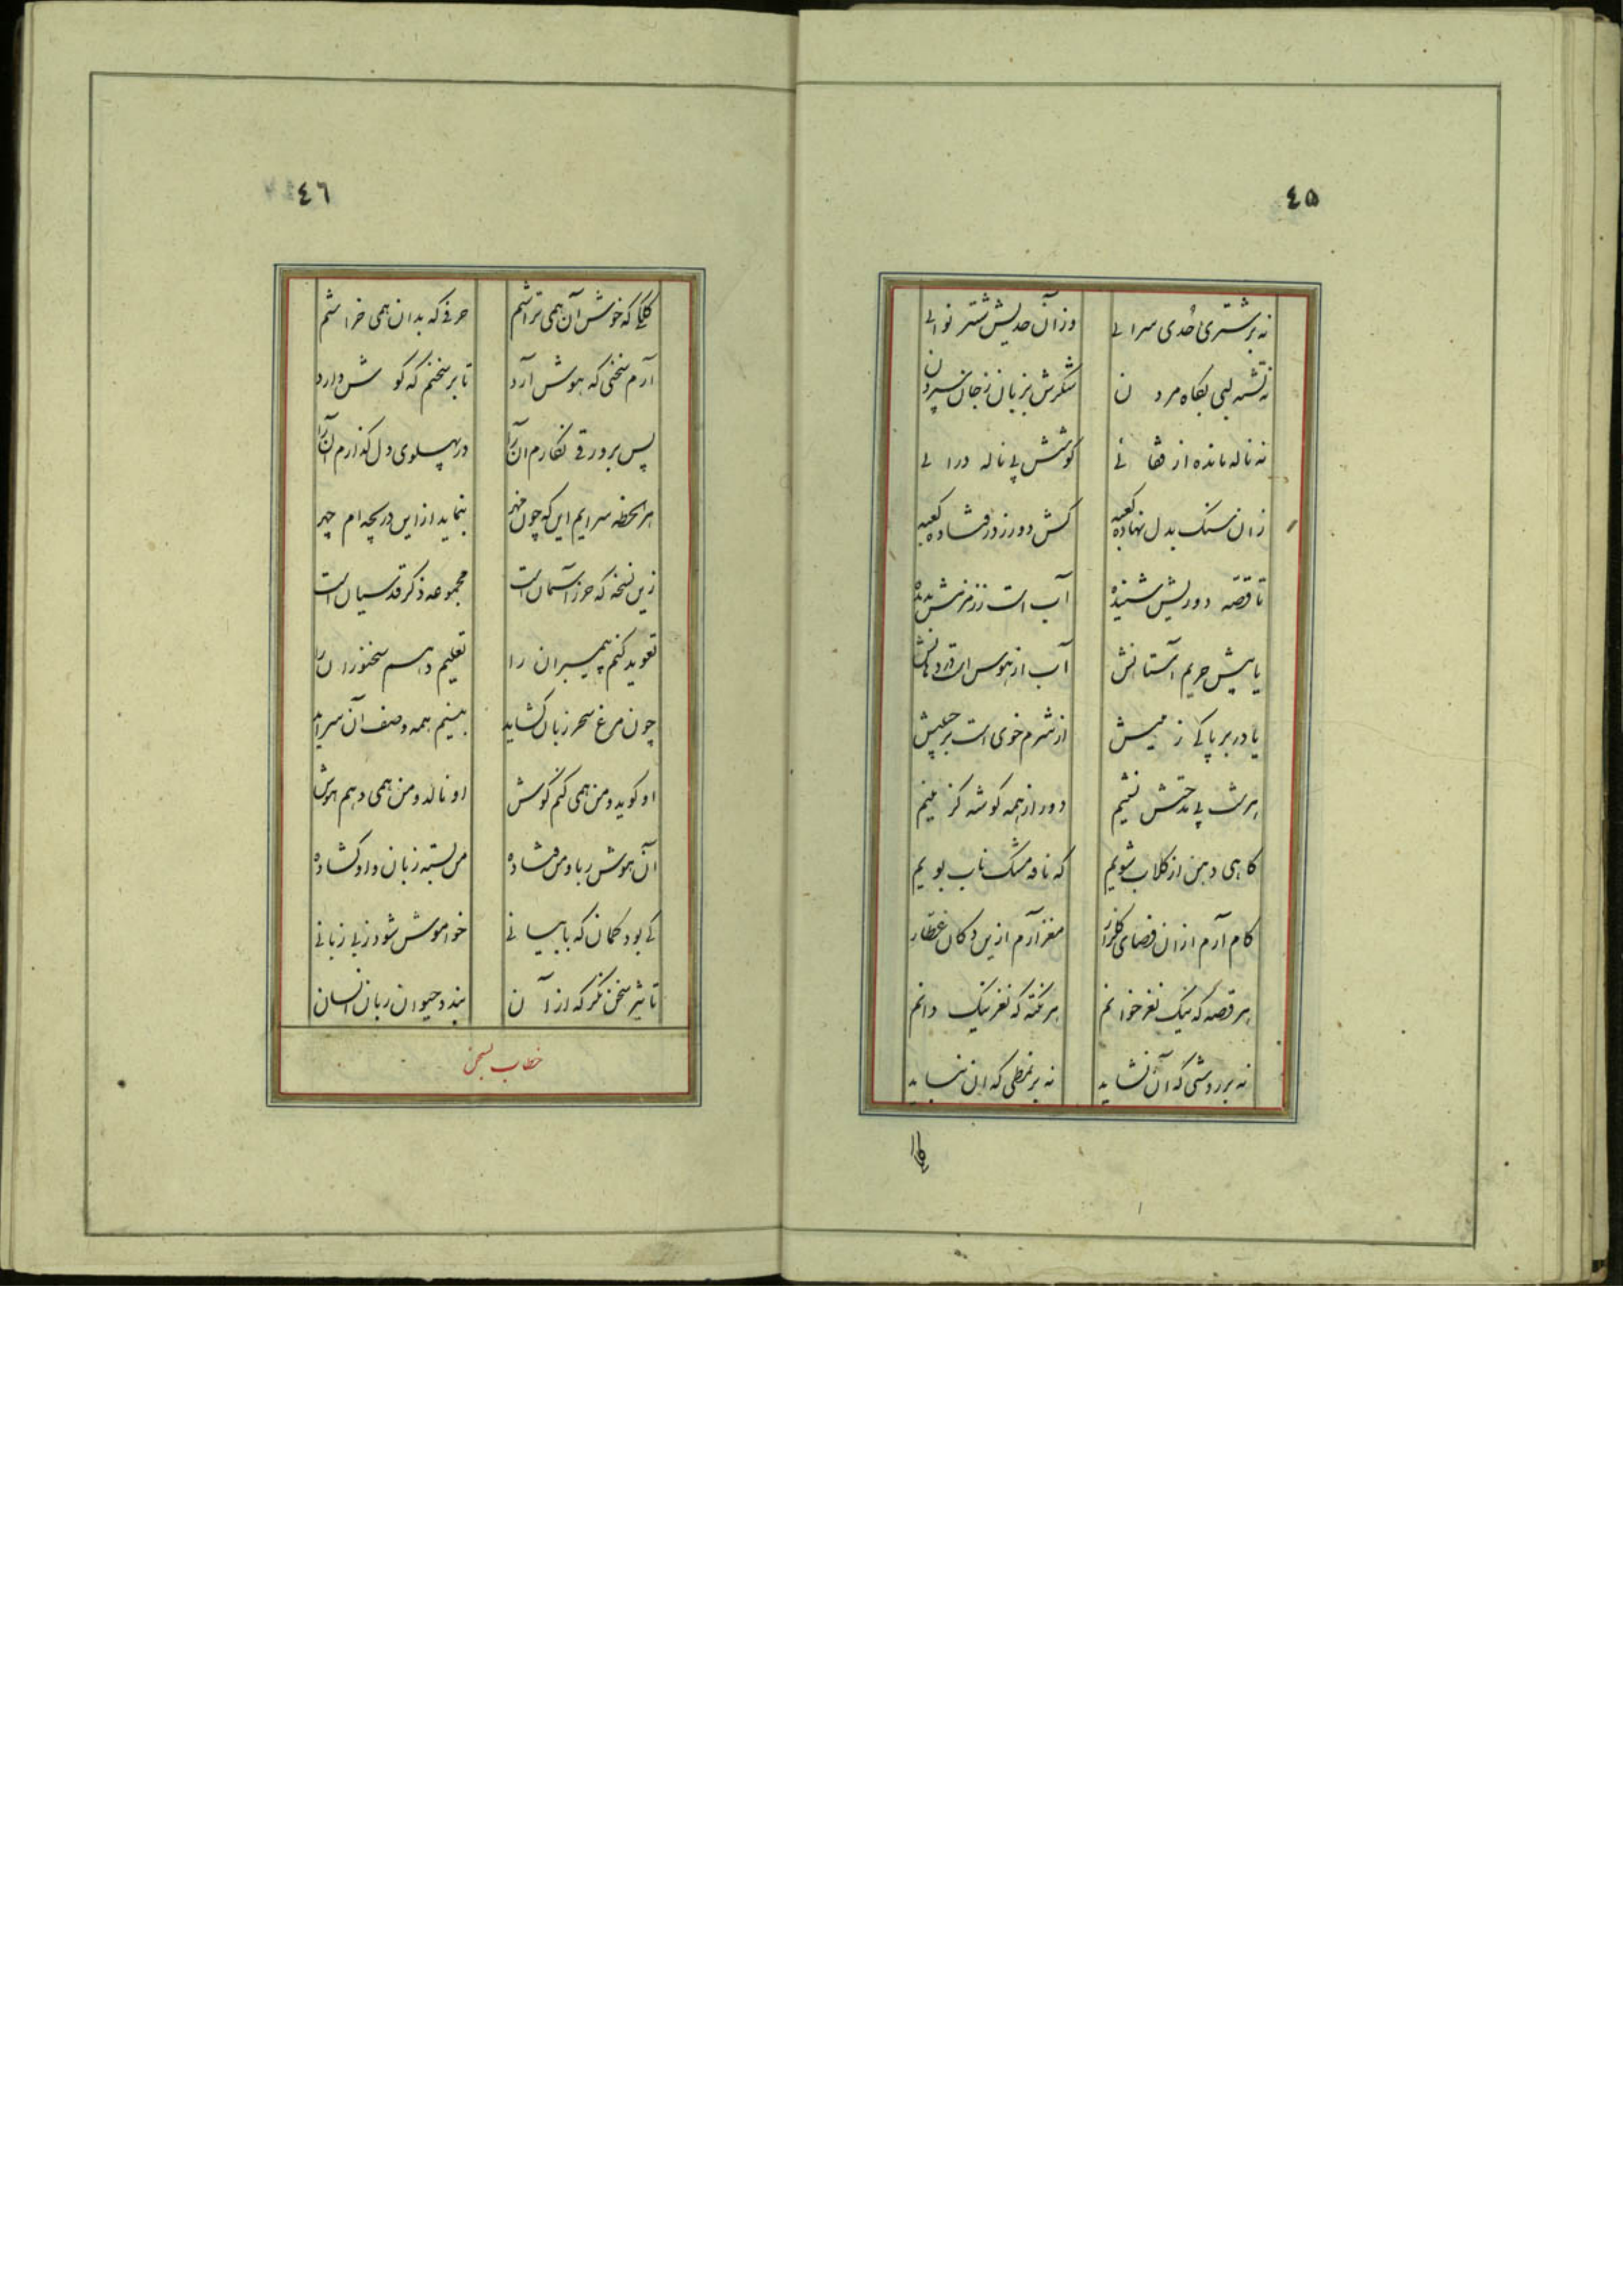 ٤٥
نه بر شتری حُدی سرائی وز آن حدیش شتر نوائی
نه تشنه لبی بکاه مردن شکرش بزبان ز جان سپردن
نه ناله مانده از فغانی کوشش پی ناله درائی
زان سنک بدل نهاده کعبه کش دور ز در فتاده کعبه
تا قصّه دوریش شنیده آب است ز زمزمش بدیده
یا پیش حریم آستانش آب از هوس است در دهانش
یا در بر پاکی زمیش از شرم خوی است بر جبینش
هر شب پی مدحتش نشینم دور از همه کوشه کزینم
کاهی دهن از کلاب شویم که نافه مشک ناب بویم
کام آرم از ان فضای کلزار مغز آرم ازین دکان عطّار
هر قصه که نیک نغز خوانم هر نکته که نغز نیک دانم
نه بر روشی که آن نشاید نه بر نمطی که ان نباید
٤٦
کلکی که خوش آن همی تراشم حرفی که بدان همی خراشم
آرم سخنی که هوش آرد تا بر سخنم که کوش دارد
پس بر ورقی نکارم ان را در پهلوی دل کذارم آن را
هر لحظه سرایم این که چون مهر بنماید از این دریچه ام چهر
زین نسخه که حرز آسمان است مجموعه ذکر قدسیان است
تعوید کنم پیمبران را تعلیم دهم سخنوران را
چون مرغ سحر زبان کشاید بینم همه وصف آن سراید
او کوید و من همی کنم کوش او نالد و من همی دهم هوش
آن هوش ربا و من فتاده من بسته زبان و او کشاده
کی بود کمان که با بیانی خواموش شود ز بی زبانی
تاثیر سخن نکر که از آن بندد حیوان زبان انسان
خطاب بسخن